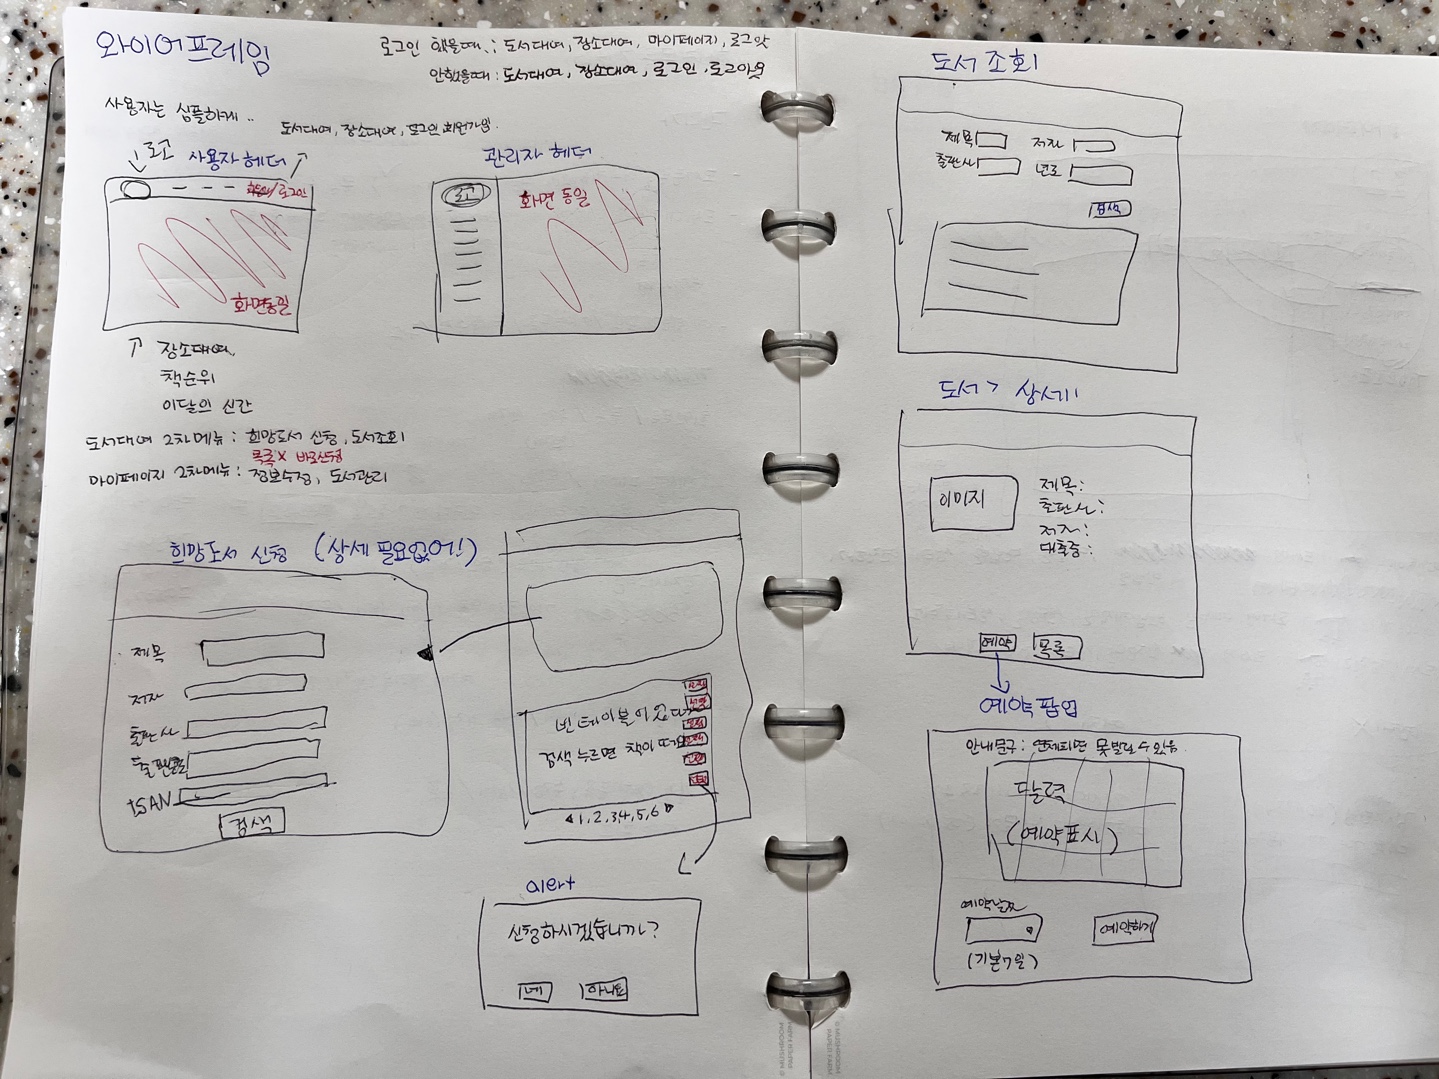 와이어프레임
로그인 했을때 : 도서대여, 장소대여, 마이페이지, 로그아웃
안했을때 : 도서대여, 장소대여, 로그인, 로그아웃
사용자는 심플하게..
도서대여, 장소대여, 로그인 회원가입.
로고
사용자 헤더
로그인
화면동일
장소대여.
책순위
이달의 신간
관리자 헤더
로고
화면 동일
도서대여 2차메뉴 : 희망도서 신청, 도서조회
목록X 바로신청
마이페이지 2차메뉴 : 정보수정, 도서관리
희망도서 신청 (상세 필요없어!)
제목
저자
출판사
ISAN
검색
빈 테이블이 있다가
검색 누르면 책이 떠요
◁1,2,3,4,5,6▷
alert
신청하시겠습니까?
네
아니요
도서 조회
제목
저자
출판사
년도
검색
도서 > 상세
이미지
제목:
출판사:
저자:
대출중:
예약
목록
예약 팝업
안내문구 : 연체되면 못빌릴수있음.
달력
(예약표시)
예약날짜
예약하기
(기본7일)